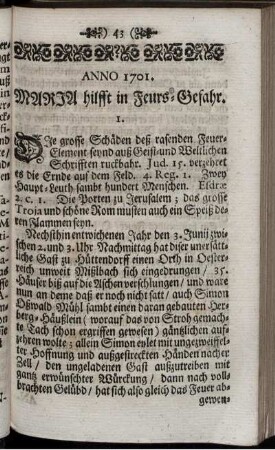 43
ANNO 1701.
MARIA hilfft in Feurs-Gefahr.
1.
DIe grosse Schäden deß rasenden Feuer-
Element seynd auß Geist- und Weltlichen
Schrifften ruckbahr. Jud. 15. verzehret
es die Ernde auf dem Feld. 4. Reg. 1. Zwey
Haupt-Leuth sambt hundert Menschen. Esdræ
2. c. 1. Die Porten zu Jerusalem; das grosse
Troja und schöne Rom musten auch ein Speiß de-
ren Flammen seyn.
Nechsthin entwichenen Jahr den 3. Junij zwi-
schen 2. und 3. Uhr Nachmittag hat diser unersätt-
liche Gast zu Hüttendorf einen Orth in Oester-
reich unweit Mißlbach sich eingedrungen / 35.
Häuser biß auf die Aschen verschlungen / und ware
nun an deme daß er noch nicht satt / auch Simon
Oßwald Mühl sambt einen daran gebauten Her-
berg-Häußlein (worauf das von Stroh gemach-
te Tach schon ergriffen gewesen) gänßlichen auf-
zehren wolte; allein Simon eylet mit ungezweiffel-
ter Hoffnung und außgestreckten Händen nacher
Zell / den ungeladenen Gast außzutreiben mit
gantz erwünschter Würckung / dann nach voll-
brachten Gelübd / hat sich also gleich das Feuer ab-
gewen-